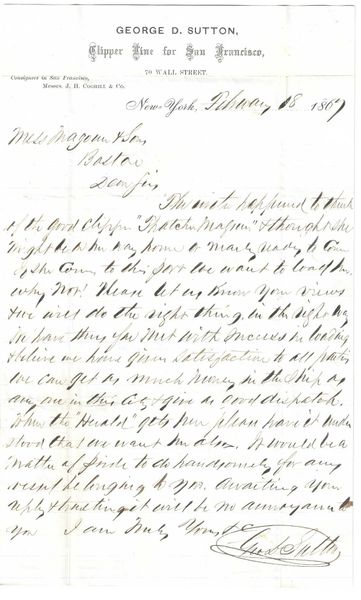 GEORGE D. SUTTON,
Clipper Line for San Francisco,
70 WALL STREET.
Consignees in San Francisco,
MESSRS. J. H. COGHILL & CO.
New-York, February 18 1867
Mess Magoun & Sons
Boston
Dear Sirs
The writer happened to think
of the good clipper "Thatcher Magoun" & thought she
might be on her way home or nearly ready to come
if she comes to this port we want to load her,
why not! Please let us know your views
& we will do the right thing, in the right way
we have thus far met with success in loading
& believe we have given satisfaction to all parties
we can get as much money in the ship as
any one in this City & give as good dispatch.
When the "Herald" gets here please have it under
stood that we want her also. It would be a
matter of pride to do handsomely for any
vessel belonging to you. Awaiting your
reply & trusting it will be no annoyance to
you I am Truly Yours &c
Geo D Sutton